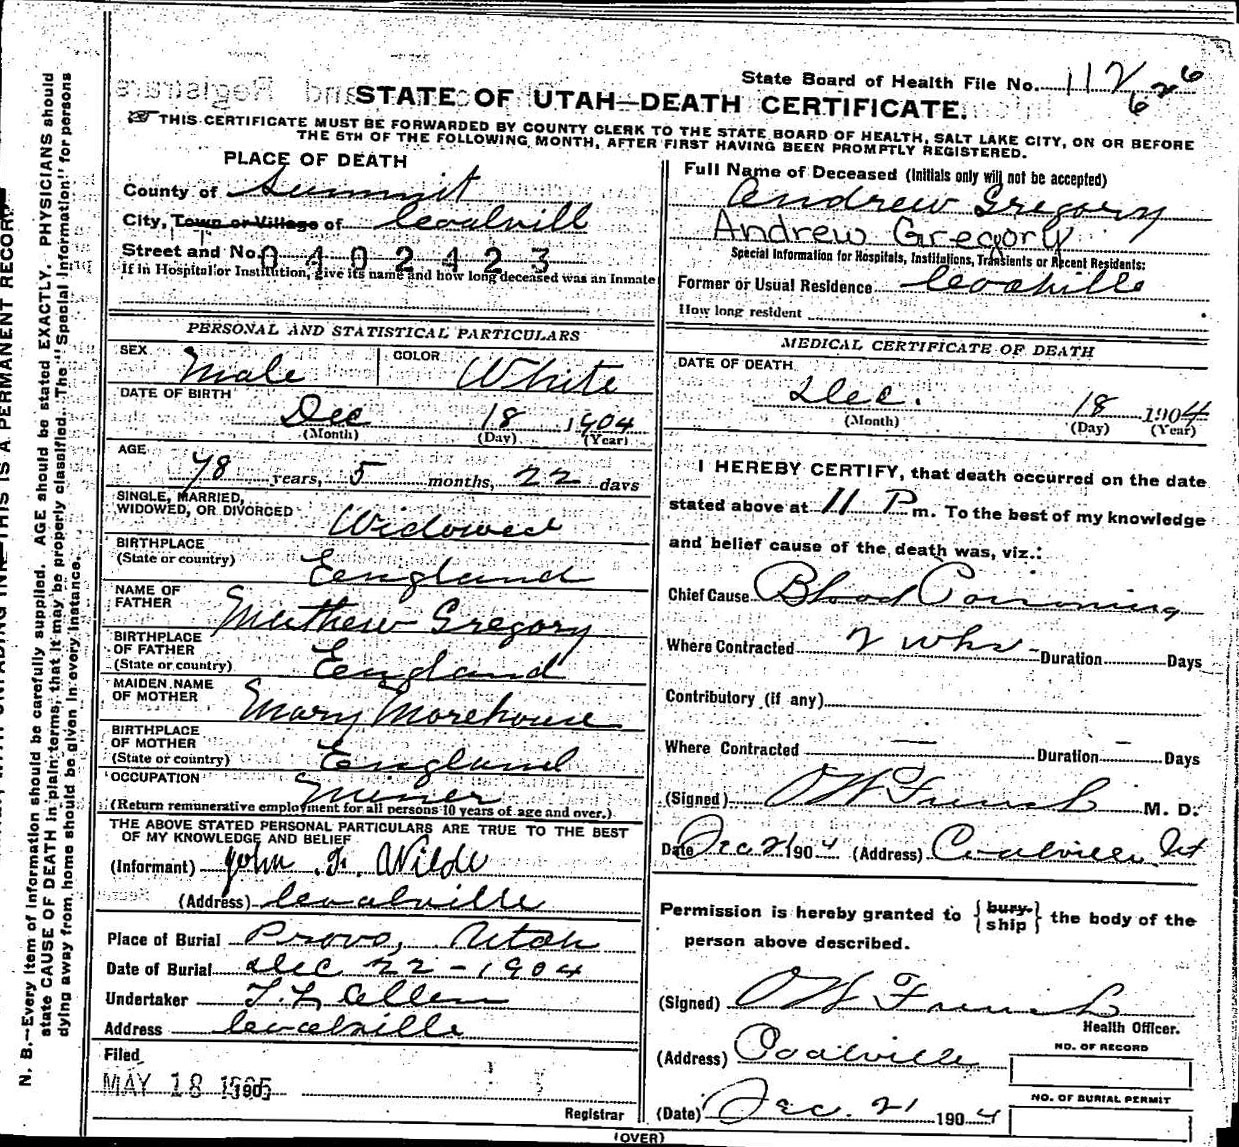 State Board of Health File No. 112
626
STATE OF UTAH—DEATH CERTIFICATE.
THIS CERTIFICATE MUST BE FORWARDED BY COUNTY CLERK TO THE STATE BOARD OF HEALTH, SALT LAKE CITY, ON OR BEFORE
THE 5TH OF THE FOLLOWING MONTH, AFTER FIRST HAVING BEEN PROMPTLY REGISTERED.
PLACE OF DEATH
County of Summit
City, Town or Village of Coalvill
Street and No. 0402423
If in Hospital or Institution, give its name and how long deceased was an Inmate
PERSONAL AND STATISTICAL PARTICULARS
SEX Male COLOR White
DATE OF BIRTH
Dec 18 1904
(Month) (Day) (Year)
AGE
78 years, 5 months, 22 days
SINGLE, MARRIED,
WIDOWED, OR DIVORCED Widowed
BIRTHPLACE
(State or country) England
NAME OF
FATHER Mathew Gregory
BIRTHPLACE
OF FATHER
(State or country) England
MAIDEN NAME
OF MOTHER Mary Morehouse
BIRTHPLACE
OF MOTHER
(State or country) England
OCCUPATION Miner
(Return remunerative employment for all persons 10 years of age and over.)
THE ABOVE STATED PERSONAL PARTICULARS ARE TRUE TO THE BEST
OF MY KNOWLEDGE AND BELIEF
(Informant) John F. Wilde
(Address) Coalville
Place of Burial Provo, Utah
Date of Burial Dec 22-1904
Undertaker T. L. Allen
Address Coalville
Filed
MAY 18 1905 190
Registrar
Full Name of Deceased (Initials only will not be accepted)
Andrew Gregory
Andrew Gregory
Special Information for Hospitals, Institutions, Transients or Recent Residents:
Former or Usual Residence Coalville
How long resident
MEDICAL CERTIFICATE OF DEATH
DATE OF DEATH
Dec. 18 1904
(Month) (Day) (Year)
I HEREBY CERTIFY, that death occurred on the date
stated above at 11 P m. To the best of my knowledge
and belief cause of the death was, viz.:
Chief Cause Blood Poisoning
Where Contracted 2 wks - Duration Days
Contributory (if any)
Where Contracted — Duration — Days
(Signed) M. D.
Date Dec 21 1904 (Address) Coalville Ut
Permission is hereby granted to {bury- ship} the body of the
person above described.
(Signed)
Health Officer.
(Address) Coalville
NO. OF RECORD
NO. OF BURIAL PERMIT
(Date) Dec. 21 1904
(OVER)
N. B.—Every item of information should be carefully supplied. AGE should be stated EXACTLY. PHYSICIANS should
state CAUSE OF DEATH in plain terms, that it may be properly classified. The "Special Information" for persons
dying away from home should be given in every instance.
THIS IS A PERMANENT RECORD